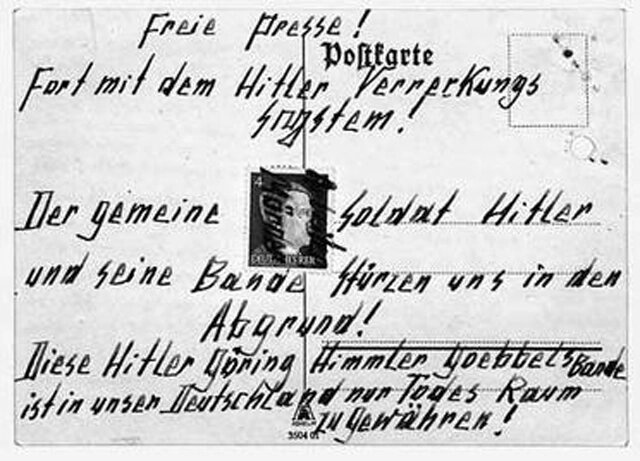 Freie Presse!
Postkarte
Fort mit dem Hitler Verrerkungs
System!
Der gemeine Soldat Hitler
und seine Bande stürzen uns in den
Abgrund!
Diese Hitler Göring Himmler Goebbels Bande
ist in unser Deutschland nur Todes Raum
zu gewähren!
3504 01